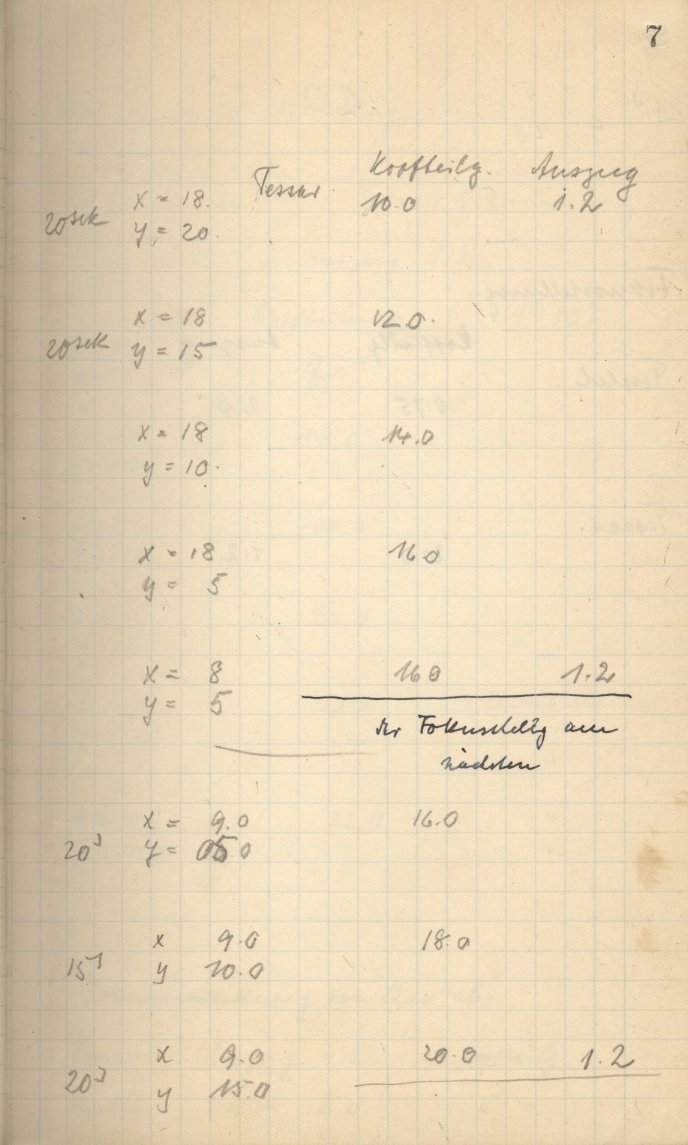 7
Tessar Kopfteilg. Auszug
x = 18. 10.0 1.2
20sek y = 20.
x = 18 12.0.
20sek y = 15
x = 18 14.0
y = 10.
x = 18 16.0
y = 5
x = 8 16.0 1.2
y = 5
der Fokusstellg am
nächsten
x = 9.0 16.0
20s y = 05.0
x 9.0 18.0
15s y 10.0
x 9.0 20.0 1.2
20s y 15.0